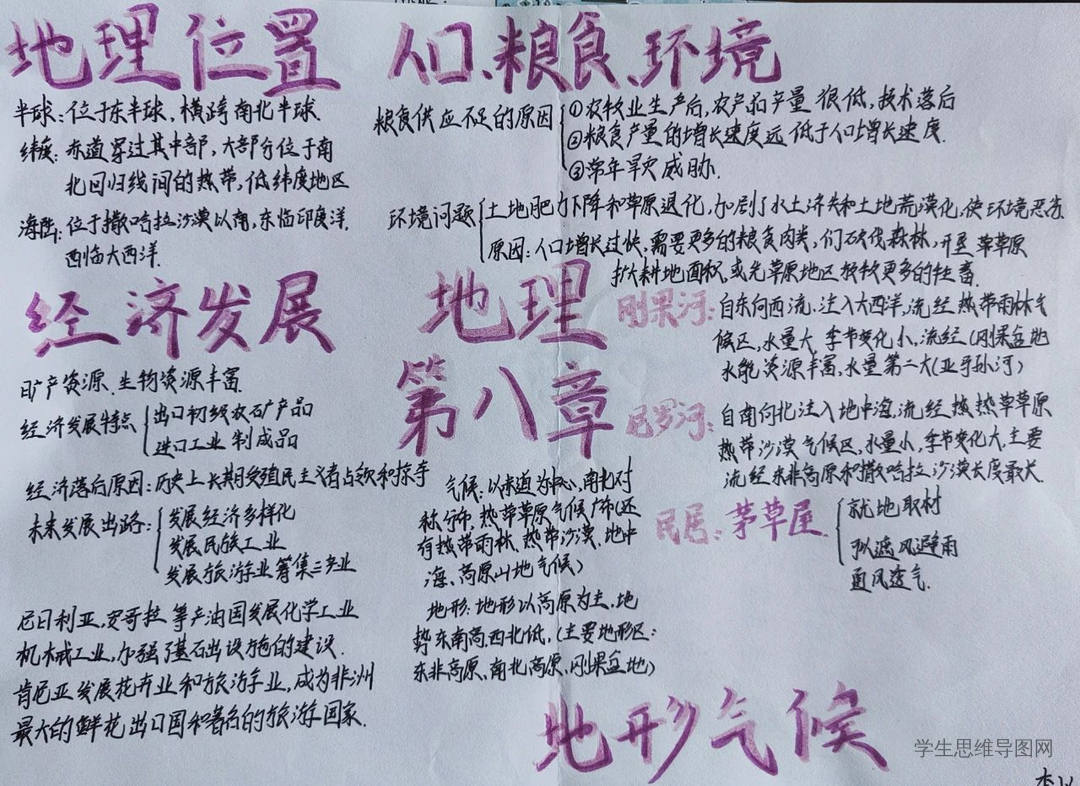 地理位置
半球:位于东半球,横跨南北半球.
纬度:赤道穿过其中部,大部分位于南
北回归线间的热带,低纬度地区
海陆:位于撒哈拉沙漠以南,东临印度洋.
西临大西洋.
人口、粮食、环境
粮食供应不足的原因
①农牧业生产后,农产品产量很低,技术落后
②粮食产量的增长速度远低于人口增长速度.
③常年旱灾威胁.
环境问题
土地肥力下降和草原退化,加剧了水土流失和土地荒漠化,使环境恶
原因:人口增长过快,需要更多的粮食肉类,们砍伐森林,开垦草草原
扩大耕地面积,或允草原地区放牧更多的牲畜.
经济发展
矿产资源、生物资源丰富.
经济发展特点
出口初级农矿产品
进口工业制成品
经济落后原因:历史上长期受殖民主义者占领和
未来发展出路:
发展经济多样化
发展民族工业
发展旅游业等第三产业
尼日利亚,安哥拉等产油国发展化学工业
机械工业,加强了基石出设施的建设.
肯尼亚发展花卉业和旅游业,成为非洲
最大的鲜花出口国和著名的旅游国家.
地理
第八章
刚果河:
自东向西流、注入大西洋,流经热带雨林气
候区,水量大,季节变化小,流经(刚果盆地
水能资源丰富,水量第二大(亚马孙河)
尼罗河:
自南向北注入地中海,流经热热带草原
热带沙漠气候区,水量小,季节变化大,主要
流经东非高原和撒哈拉沙漠长度最大.
民居:茅草屋
就地取材
风避雨
通风透气.
气候:以赤道为中心,南北对
称分布,热带草原气候广布(还
有热带雨林、热带沙漠、地中
海、高原山地气候)
地形:地形以高原为主,地
势东南高,西北低,(主要地形区:
东非高原、南北高原、刚果盆地)
地形气候
学生思维导图网